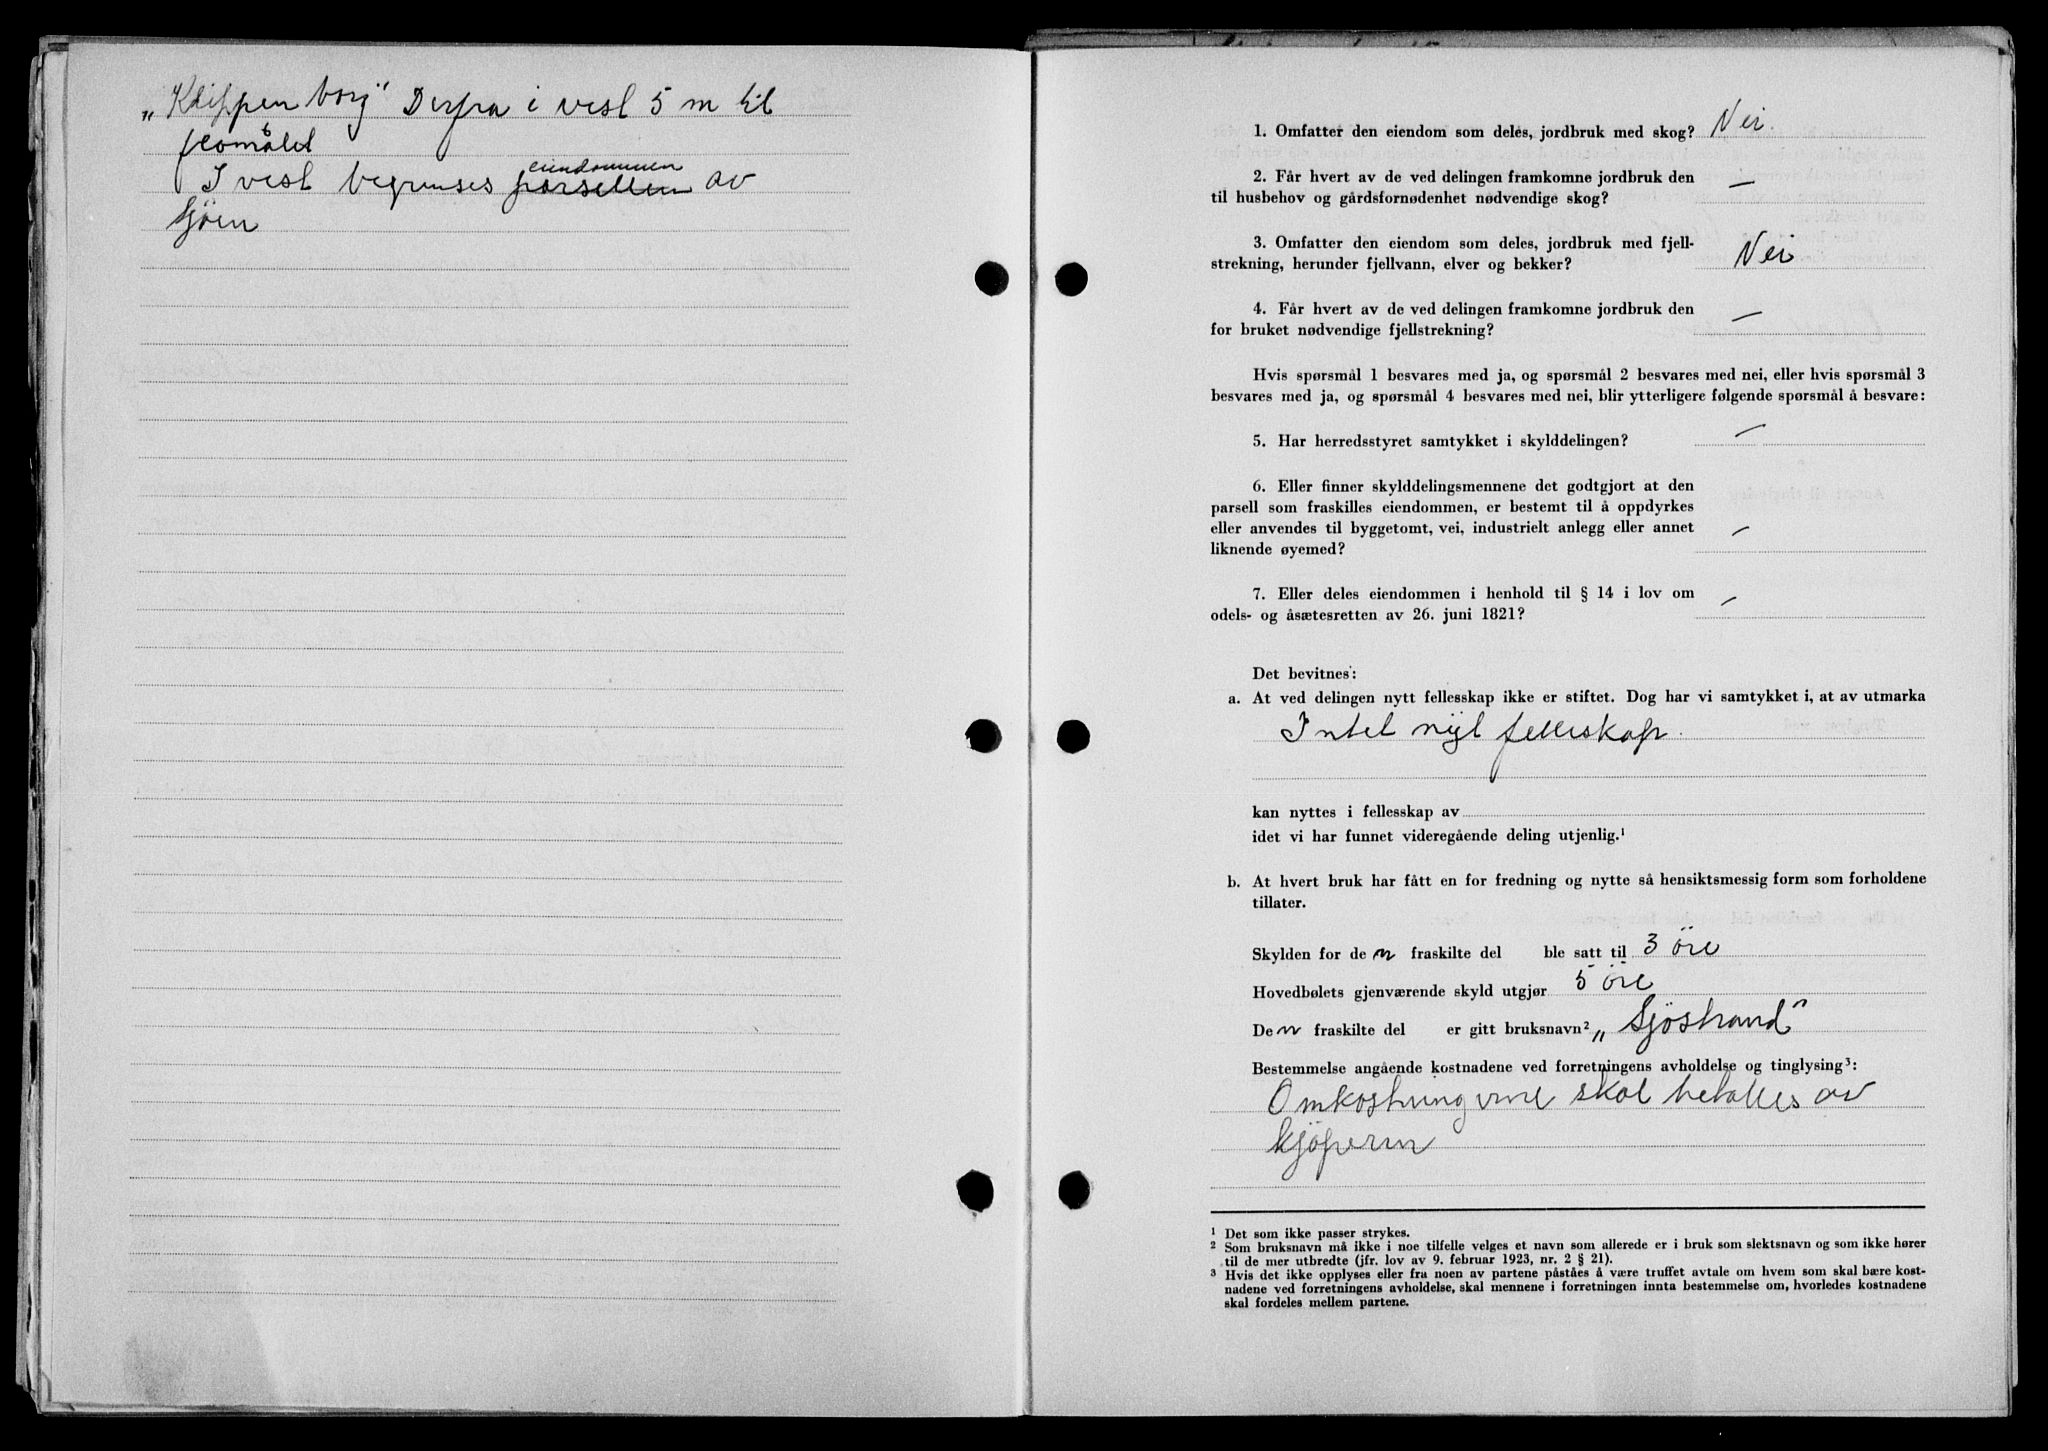 „Klippenborg" Derfra i vest 5 m til
flomålet
I vest begrenses parsellen eiendommen av
Sjöen
1. Omfatter den eiendom som deles, jordbruk med skog? Nei.
2. Får hvert av de ved delingen framkomne jordbruk den
til husbehov og gårdsfornødenhet nødvendige skog? —
3. Omfatter den eiendom som deles, jordbruk med fjell-
strekning, herunder fjellvann, elver og bekker? Nei
4. Får hvert av de ved delingen framkomne jordbruk den
for bruket nødvendige fjellstrekning? —
Hvis spørsmål 1 besvares med ja, og spørsmål 2 besvares med nei, eller hvis spørsmål 3
besvares med ja, og spørsmål 4 besvares med nei, blir ytterligere følgende spørsmål å besvare:
5. Har herredsstyret samtykket i skylddelingen? —
6. Eller finner skylddelingsmennene det godtgjort at den
parsell som fraskilles eiendommen, er bestemt til å oppdyrkes
eller anvendes til byggetomt, vei, industrielt anlegg eller annet
liknende øyemed? —
7. Eller deles eiendommen i henhold til § 14 i lov om
odels- og åsætesretten av 26. juni 1821? —
Det bevitnes:
a. At ved delingen nytt fellesskap ikke er stiftet. Dog har vi samtykket i, at av utmarka
Intet nytt felleskap.
kan nyttes i fellesskap av
idet vi har funnet videregående deling utjenlig.¹
b. At hvert bruk har fått en for fredning og nytte så hensiktsmessig form som forholdene
tillater.
Skylden for de n fraskilte del ble satt til 3 öre
Hovedbølets gjenværende skyld utgjør 5 öre
De n fraskilte del er gitt bruksnavn² „Sjöstrand"
Bestemmelse angående kostnadene ved forretningens avholdelse og tinglysing³:
Omkostningene skal betales av
kjöperen
¹ Det som ikke passer strykes.
² Som bruksnavn må ikke i noe tilfelle velges et navn som allerede er i bruk som slektsnavn og som ikke hører
til de mer utbredte (jfr. lov av 9. februar 1923, nr. 2 § 21).
³ Hvis det ikke opplyses eller fra noen av partene påståes å være truffet avtale om hvem som skal bære kost-
nadene ved forretningens avholdelse, skal mennene i forretningen innta bestemmelse om, hvorledes kostnadene
skal fordeles mellem partene.